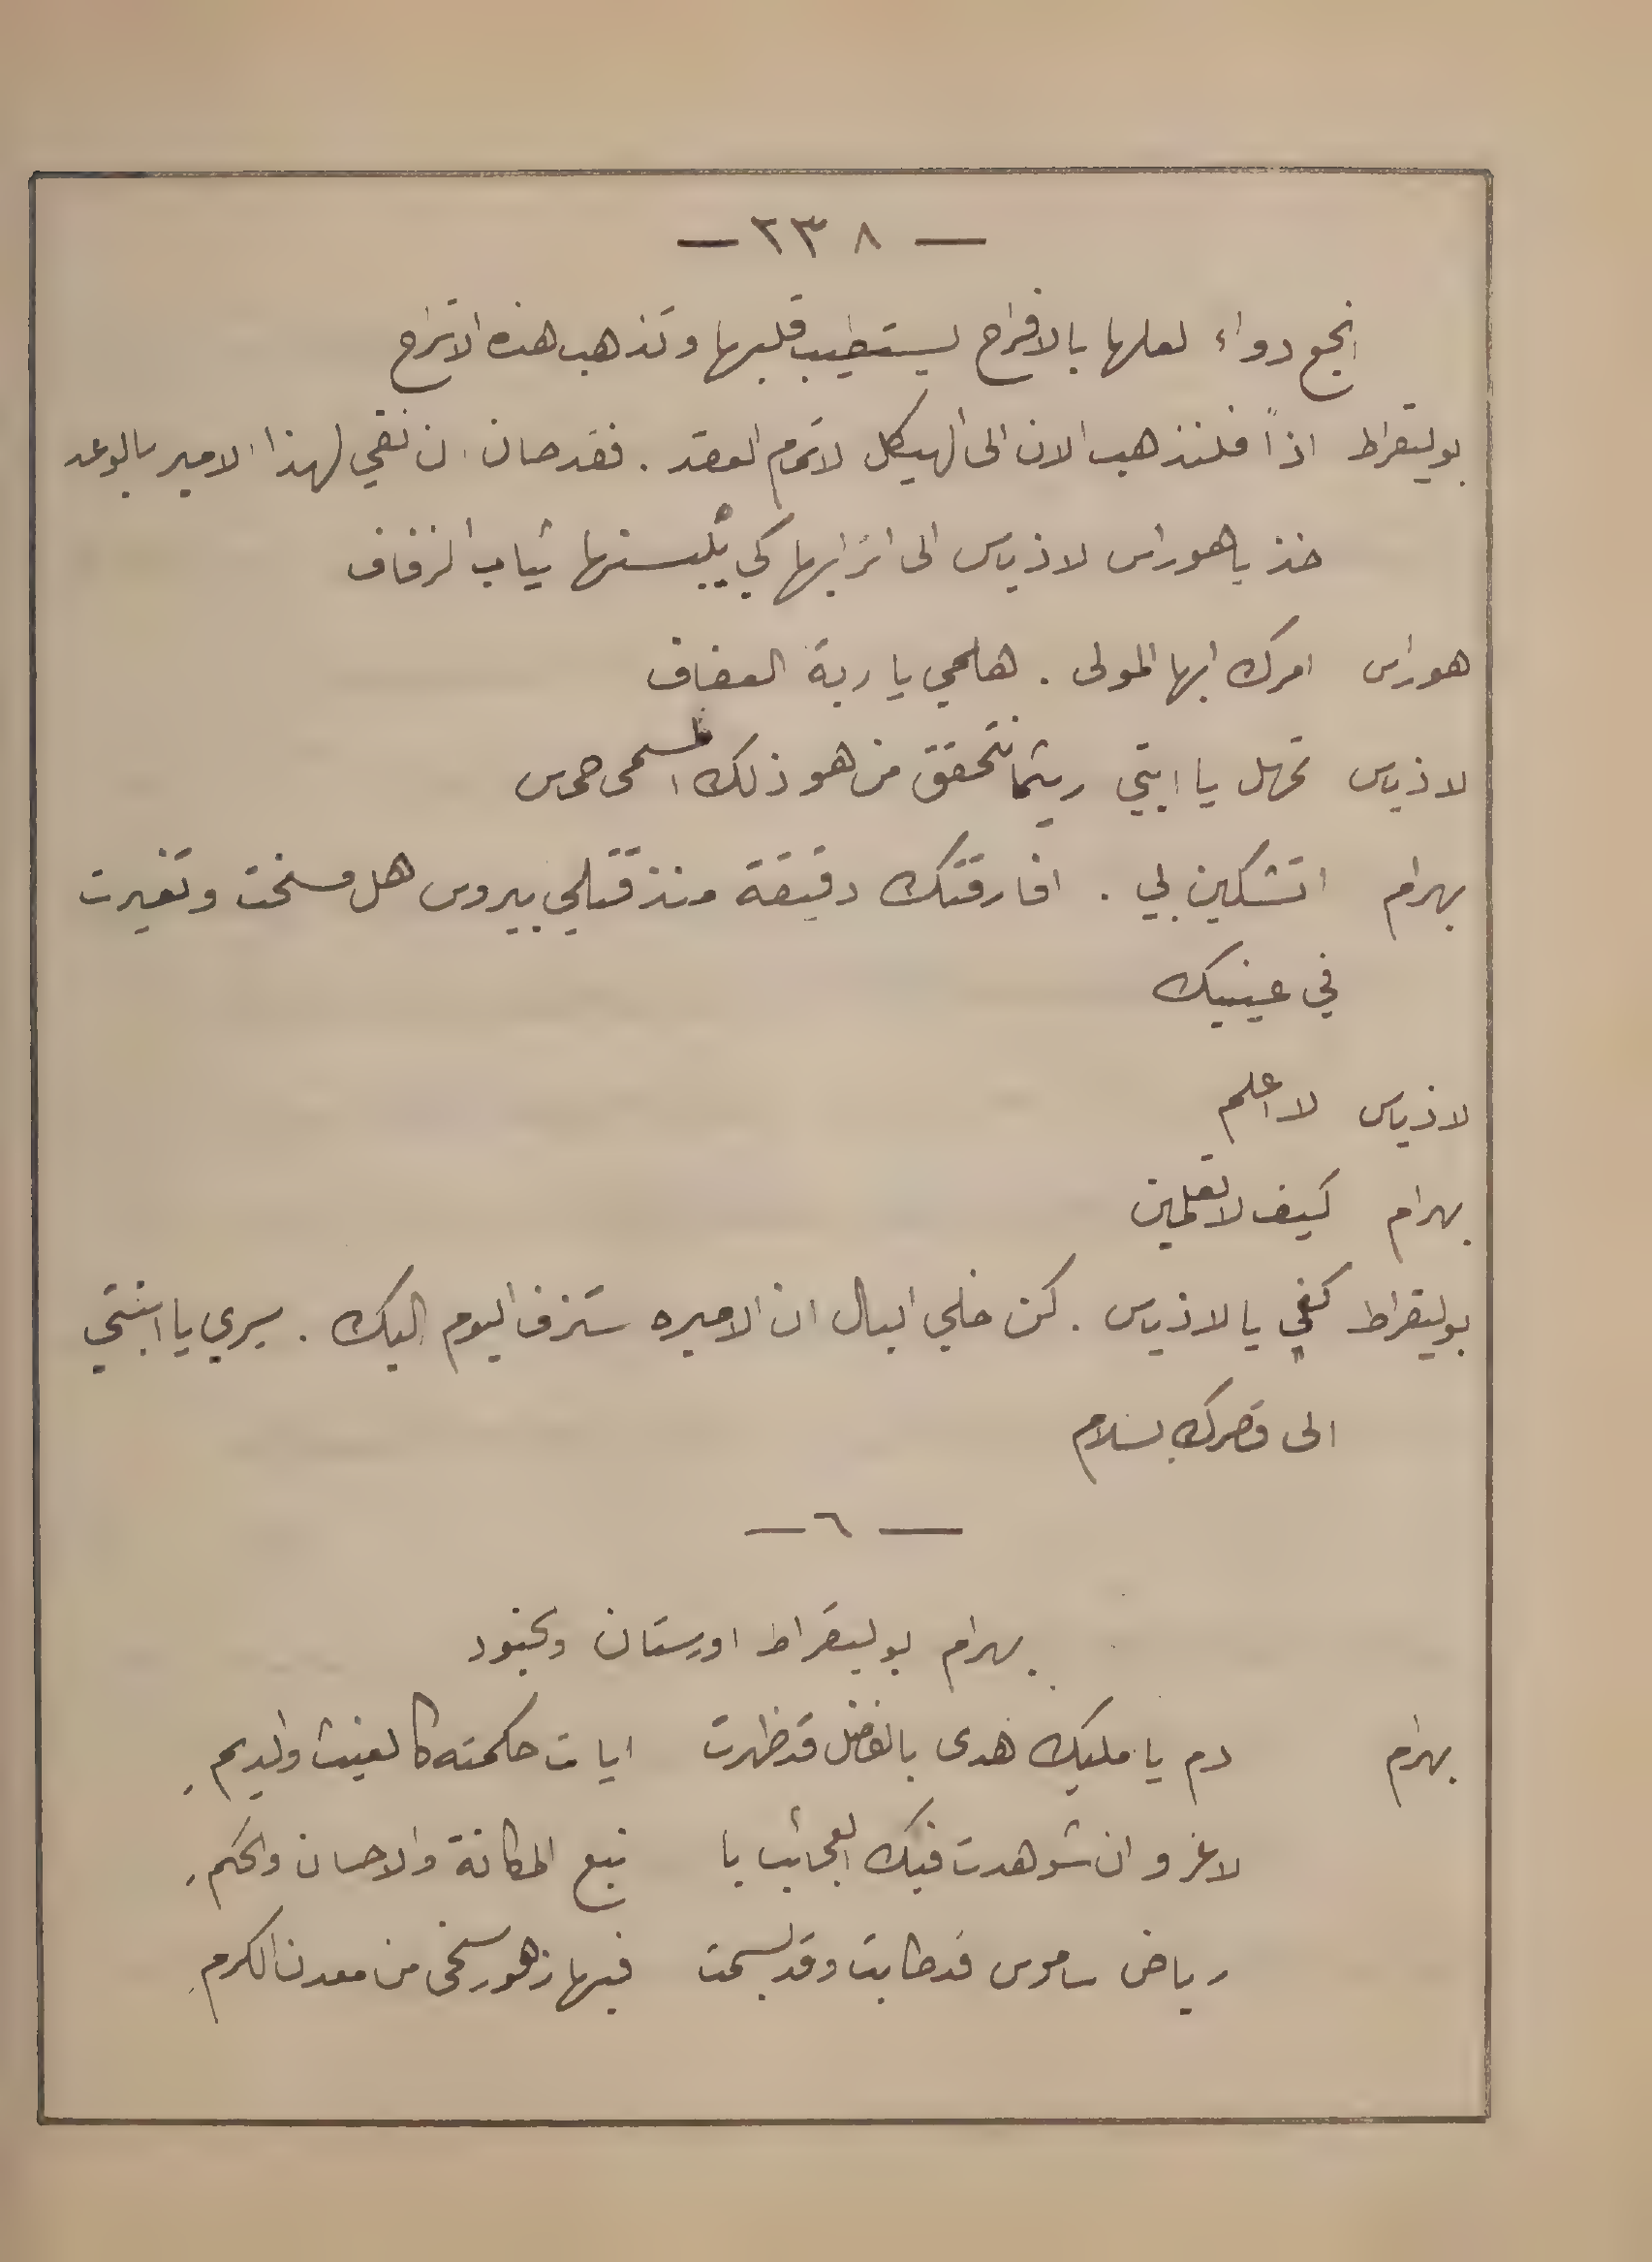 — ٢٣٨ —
انجع دواء لعلها بالافراح يستطيب قلبها وتذهب هذه الاتراح
بوليقراط اذاً فلنذهب الان الى الهيكل لاتمام العقد . فقد حان ان نفي لهذا الامير بالوعد
خذ ياهوراس لاذياس الى اترابها كي يُلبسنها ثياب الزفاف
هوراس امرك ايها المولى . هلمي يا ربة العفاف
لاذياس تمهل يا ابتي ريثما نتحقق من هو ذلك المسمى حمس
بهرام اتشكين بي . افارقتك دقيقة منذ قتلي بيروس هل مسخت وتغيرت
في عينيك
لاذياس لا اعلم
بهرام كيف لا تعلمين
بوليقراط كفي يا لاذياس . كن خلي البال ان الاميره ستزف اليوم اليك . سيري يا ابنتي
الى قصرك بسلام
— ٦ —
بهرام بوليقراط اورستان وجنود
بهرام دم يا مليك هدى بالفضل قد ظهرت ايات حكمته كالغيث والديم
لاغرو ان شوهدت فيك العجائب يا نبع المكانة والاحسان والحكم
رياض ساموس قد طابت وقد بسمت فيها زهور سخى من معدن الكرم